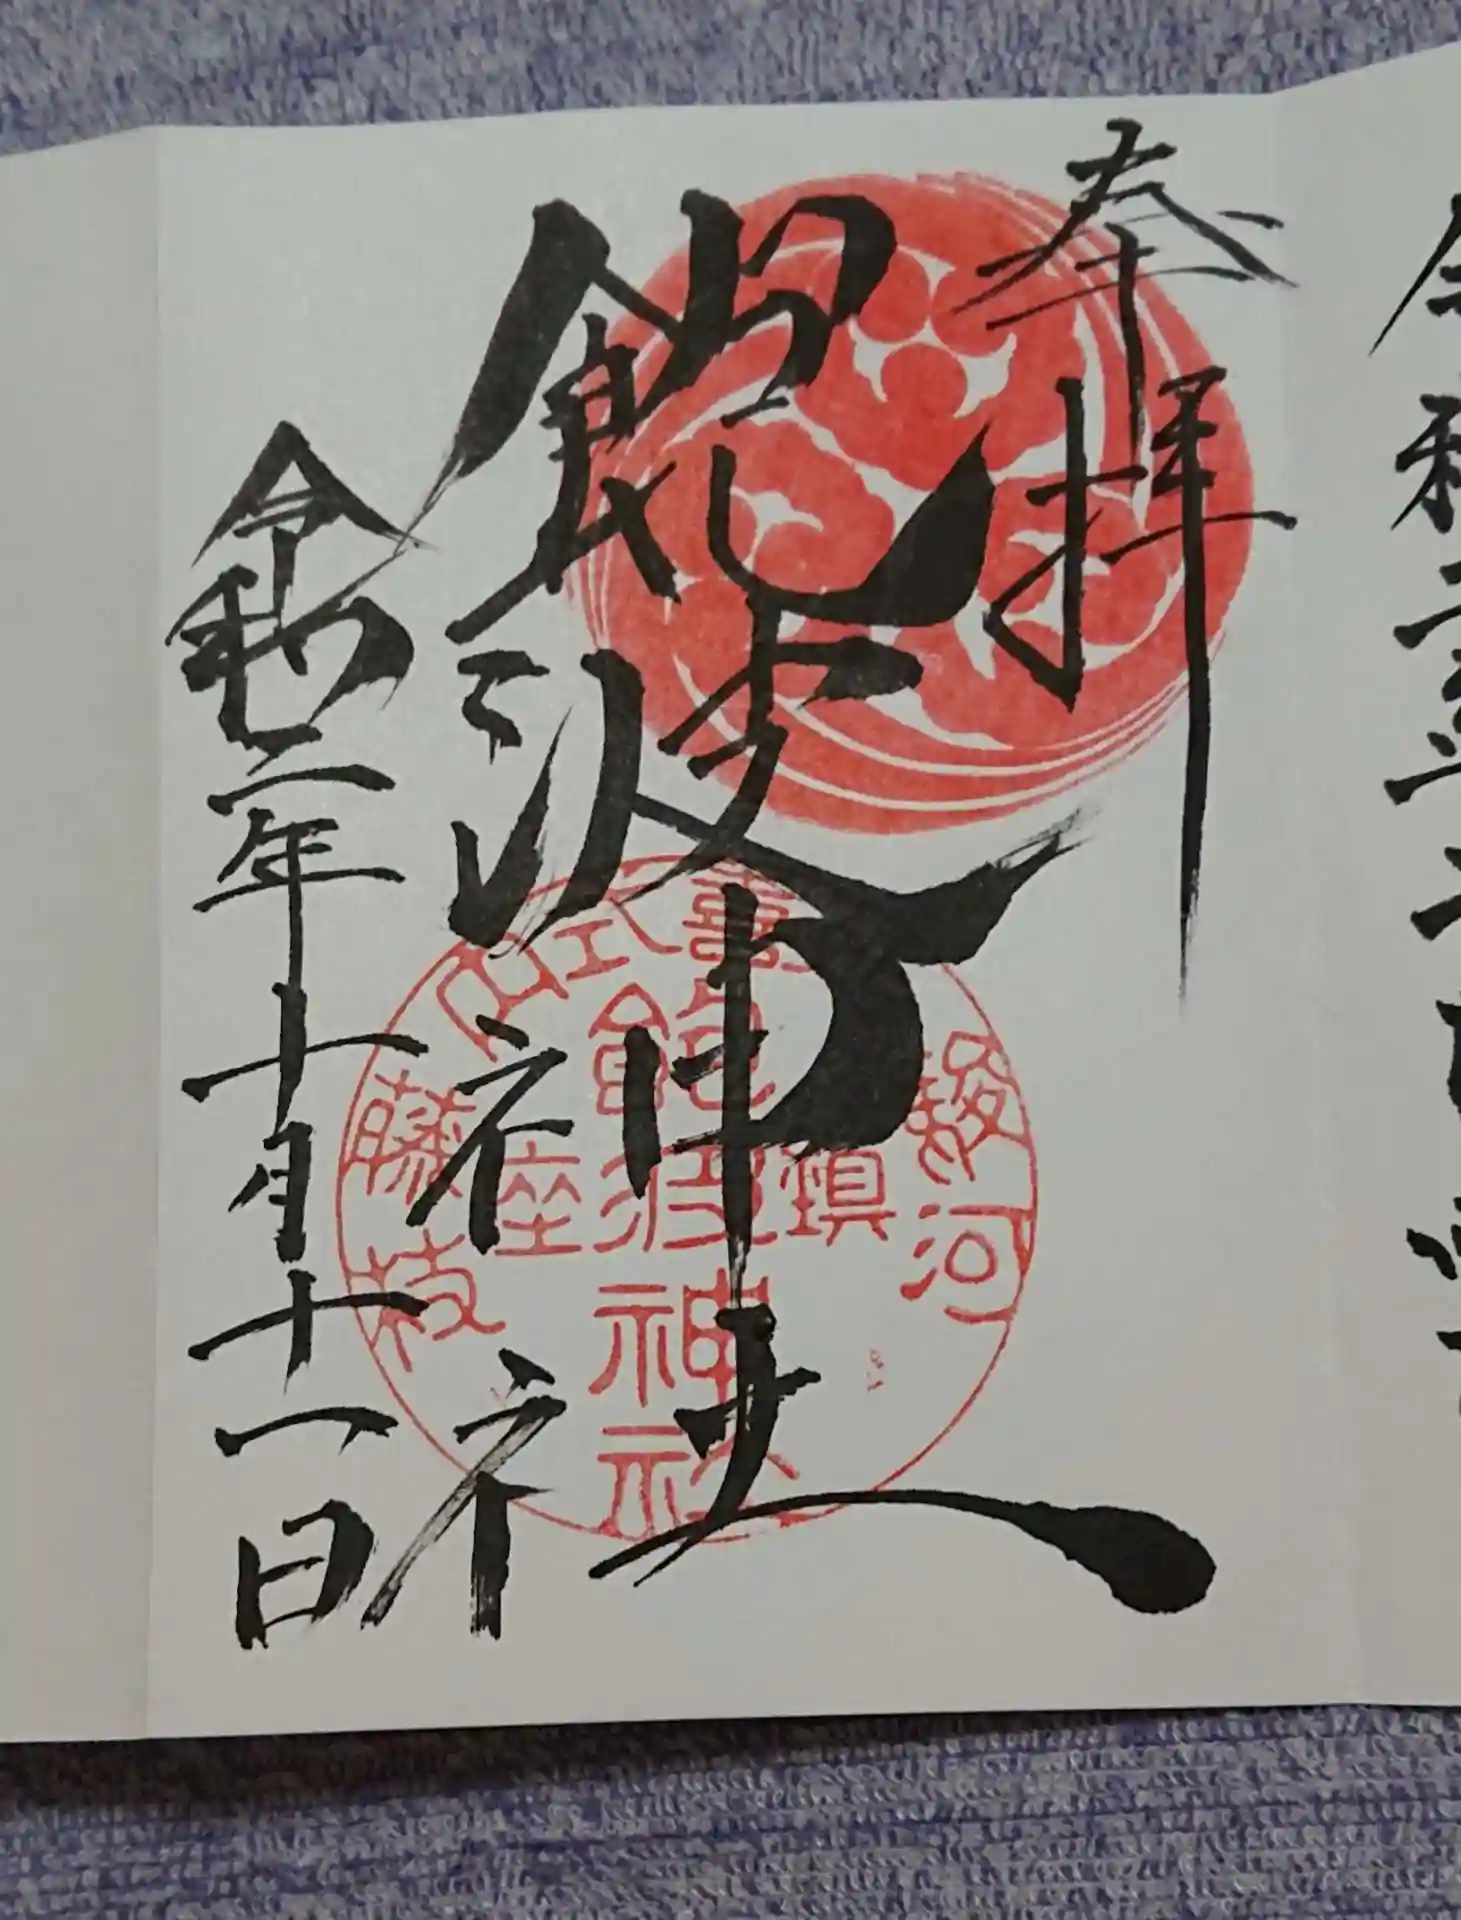 令和二年
奉拝
飽波神社
令和二年十月十一日
駿河
喜式内
藤枝
鎮座
飽波神社